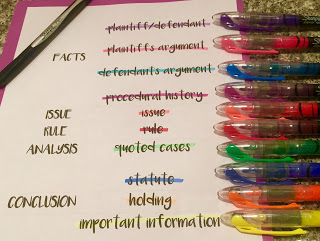 plaintiff/defendant
FACTS plaintiff's argument
defendant's argument
procedural history
ISSUE issue
RULE rule
ANALYSIS quoted cases
statute
CONCLUSION holding
important information